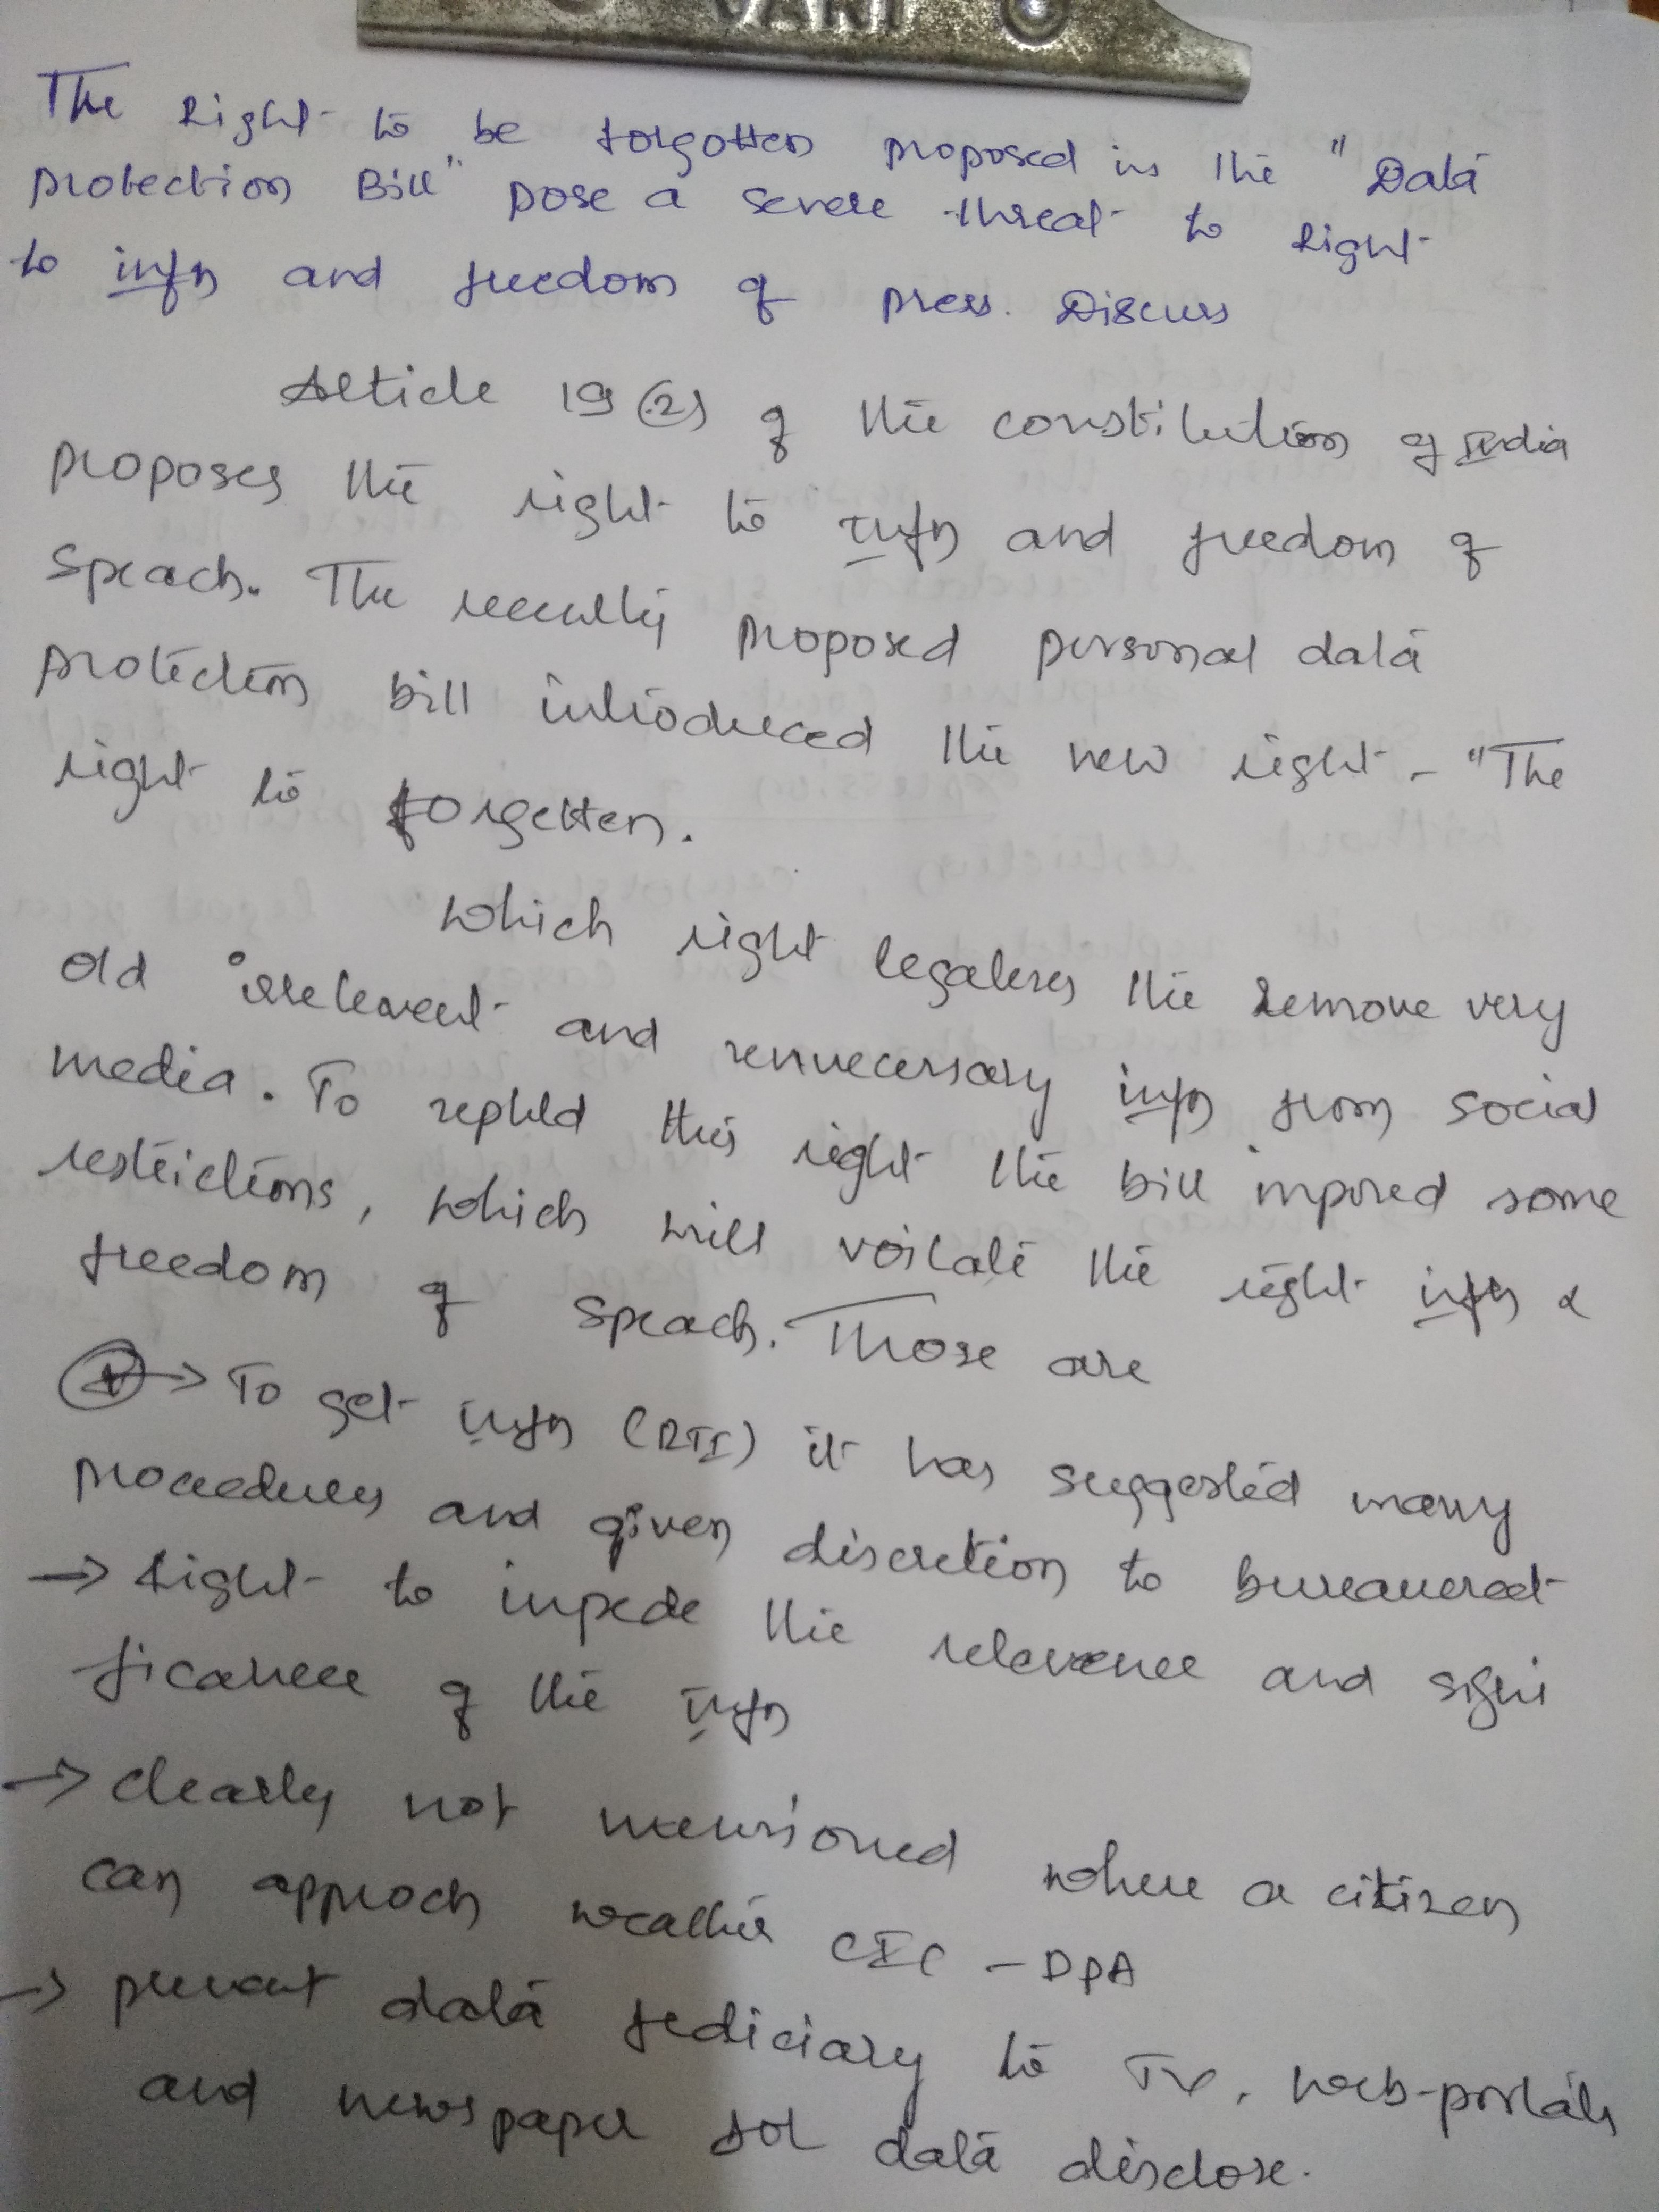 VARI
The Right to be forgotten proposed in the "Data
protection Bill" pose a severe threat to Right
to infn and freedom of press. Discuss
Article 19(2) of the constitution of India
proposes the right to Infn and freedom of
speach. The recently proposed personal data
protection bill introduced the new right - "The
right to forgetten.
which right legalises the remove very
old irrelevent and unnecessary infn from social
media. To uphld this right the bill imposed some
restrictions, which will voilate the right infn &
freedom of speach. Those are
→ To get infn (RTI) it has suggested many
procedures and given discretion to bureaucrat
→ Right to impede the relevance and signi
ficance of the Infn
→ clearly not mensioned where a citizen
can approch weather CIC - DPA
→ prevent data fediciary to TV, web-portals
and newspaper for data disclose.